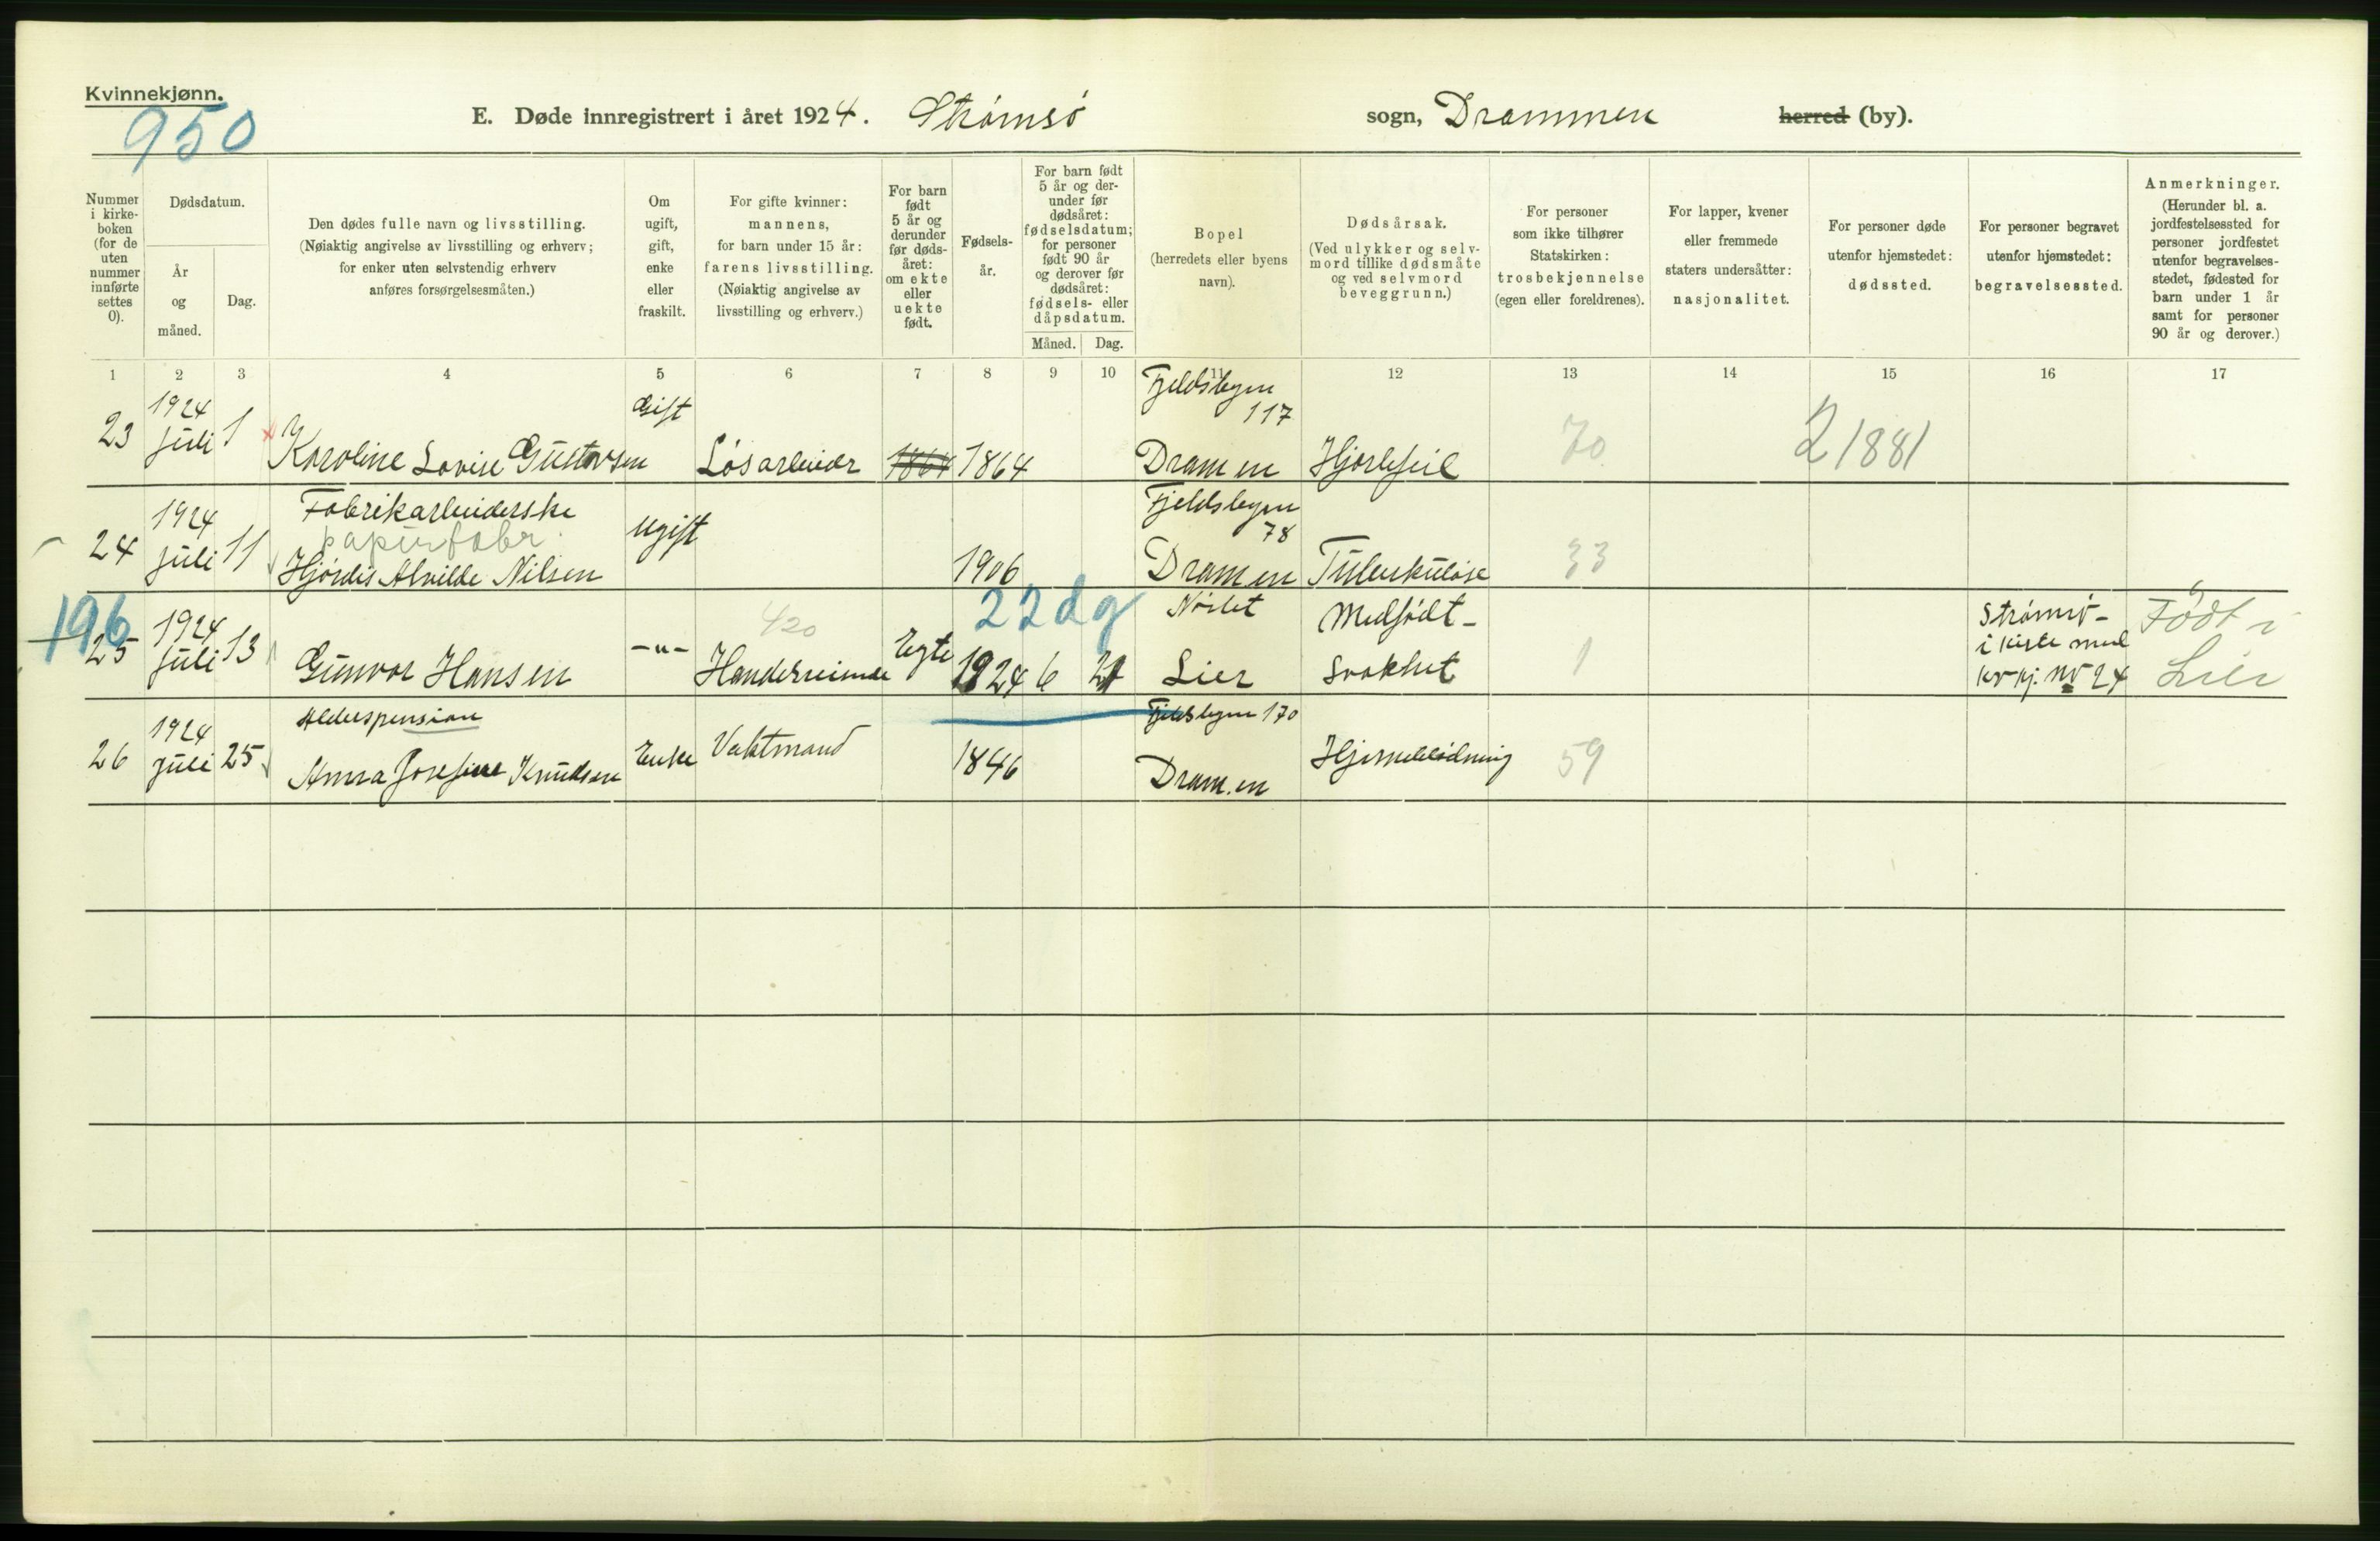 Kvinnekjønn.
950
E. Døde innregistrert i året 1924. Strømsö sogn, Drammen herred (by).
Nummer i kirkeboken (for de uten nummer innførte settes 0).
Dødsdatum.
År og måned.
Dag.
Den dødes fulle navn og livsstilling.
(Nøiaktig angivelse av livsstilling og erhverv;
for enker uten selvstendig erhverv
anføres forsørgelsesmåten.)
Om ugift, gift, enke eller fraskilt.
For gifte kvinner:
mannens,
for barn under 15 år:
farens livsstilling.
(Nøiaktig angivelse av
livsstilling og erhverv.)
For barn født 5 år og derunder før dødsåret: om ekte eller uekte født.
Fødselsår.
For barn født 5 år og derunder før dødsåret: fødselsdatum; for personer født 90 år og derover før dødsåret: fødsels- eller dåpsdatum.
Måned. Dag.
Bopel
(herredets eller byens
navn).
Dødsårsak.
(Ved ulykker og selvmord tillike dødsmåte
og ved selvmord
beveggrunn.)
For personer
som ikke tilhører
Statskirken:
trosbekjennelse
(egen eller foreldrenes).
For lapper, kvener
eller fremmede
staters undersåtter:
nasjonalitet.
For personer døde
utenfor hjemstedet:
dødssted.
For personer begravet
utenfor hjemstedet:
begravelsessted.
Anmerkninger.
(Herunder bl. a.
jordfestelsessted for
personer jordfestet
utenfor begravelsesstedet, fødested for
barn under 1 år
samt for personer
90 år og derover.)
1 2 3 4 5 6 7 8 9 10 11 12 13 14 15 16 17
23 1924 juli 1 Karoline Lovise Gustavsen Gift Løsarbeider 1864 1864 Fjeldsbyen 117 Drammen Hjertefeil 70 2 1881
24 1924 juli 11 Fabrikarbeiderske papirfabr. Hjørdis Alvilde Nilsen ugift 1906 Fjeldsbyen 78 Drammen Tuberkuløse 33
196
25 1924 juli 13 Gunvor Hansen -"- 420 Handelsreisende Egte 22 dg 1924 6 21 Nøste Lier Medfødt- svakhet 1 Strømsö- i kiste med kv kj. № 24 Födt i Lier
26 1924 juli 25 Alderspension Anna Josefine Knudsen Enke Vaktmand 1846 Fjeldsbyen 170 Drammen Hjerneblødning 59